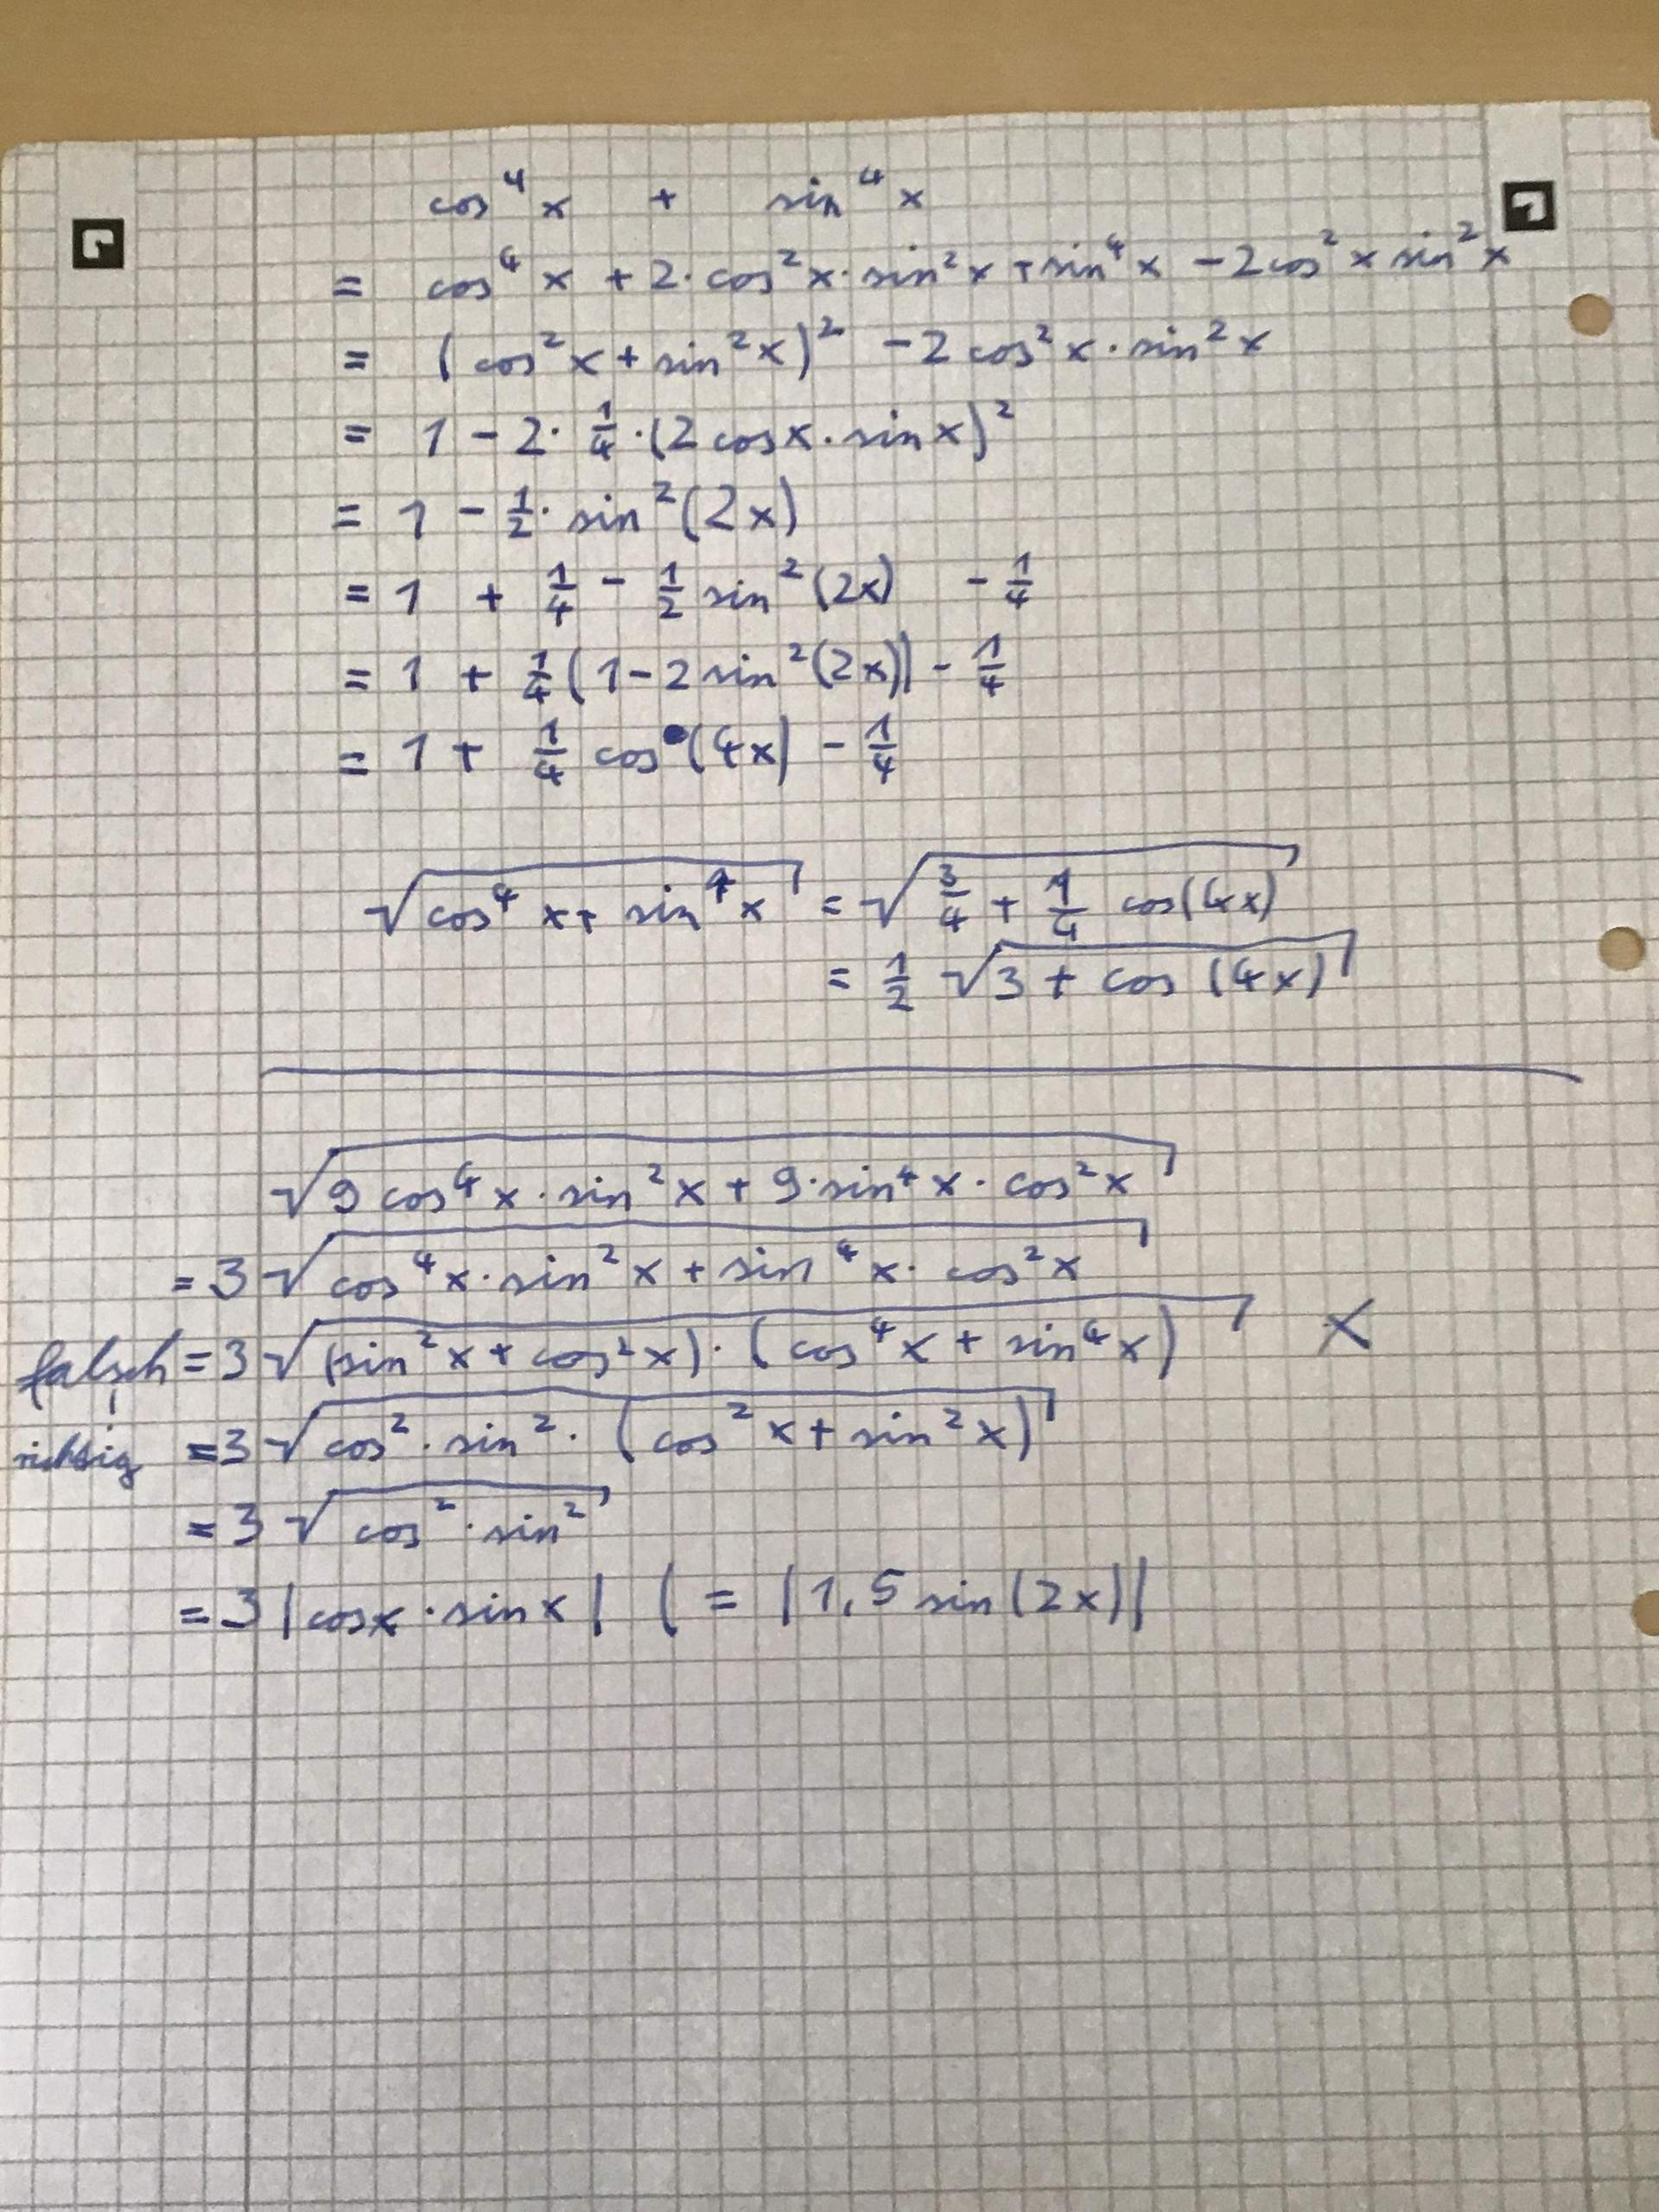 cos⁴x + sin⁴x
= cos⁴x + 2·cos²x·sin²x + sin⁴x - 2cos²x sin²x
= (cos²x + sin²x)² - 2cos²x·sin²x
= 1 - 2·1/4·(2cosx·sinx)²
= 1 - 1/2·sin²(2x)
= 1 + 1/4 - 1/2 sin²(2x) - 1/4
= 1 + 1/4(1-2sin²(2x)) - 1/4
= 1 + 1/4 cos(4x) - 1/4
√(cos⁴x + sin⁴x) = √(3/4 + 1/4 cos(4x))
= 1/2 √(3 + cos(4x))
√(9cos⁴x·sin²x + 9·sin⁴x·cos²x)
= 3√(cos⁴x·sin²x + sin⁴x·cos²x)
falsch = 3√((sin²x + cos²x)·(cos⁴x + sin⁴x)) X
richtig = 3√(cos²·sin²·(cos²x + sin²x))
= 3√(cos²·sin²)
= 3|cosx·sinx| (= |1,5 sin(2x)|